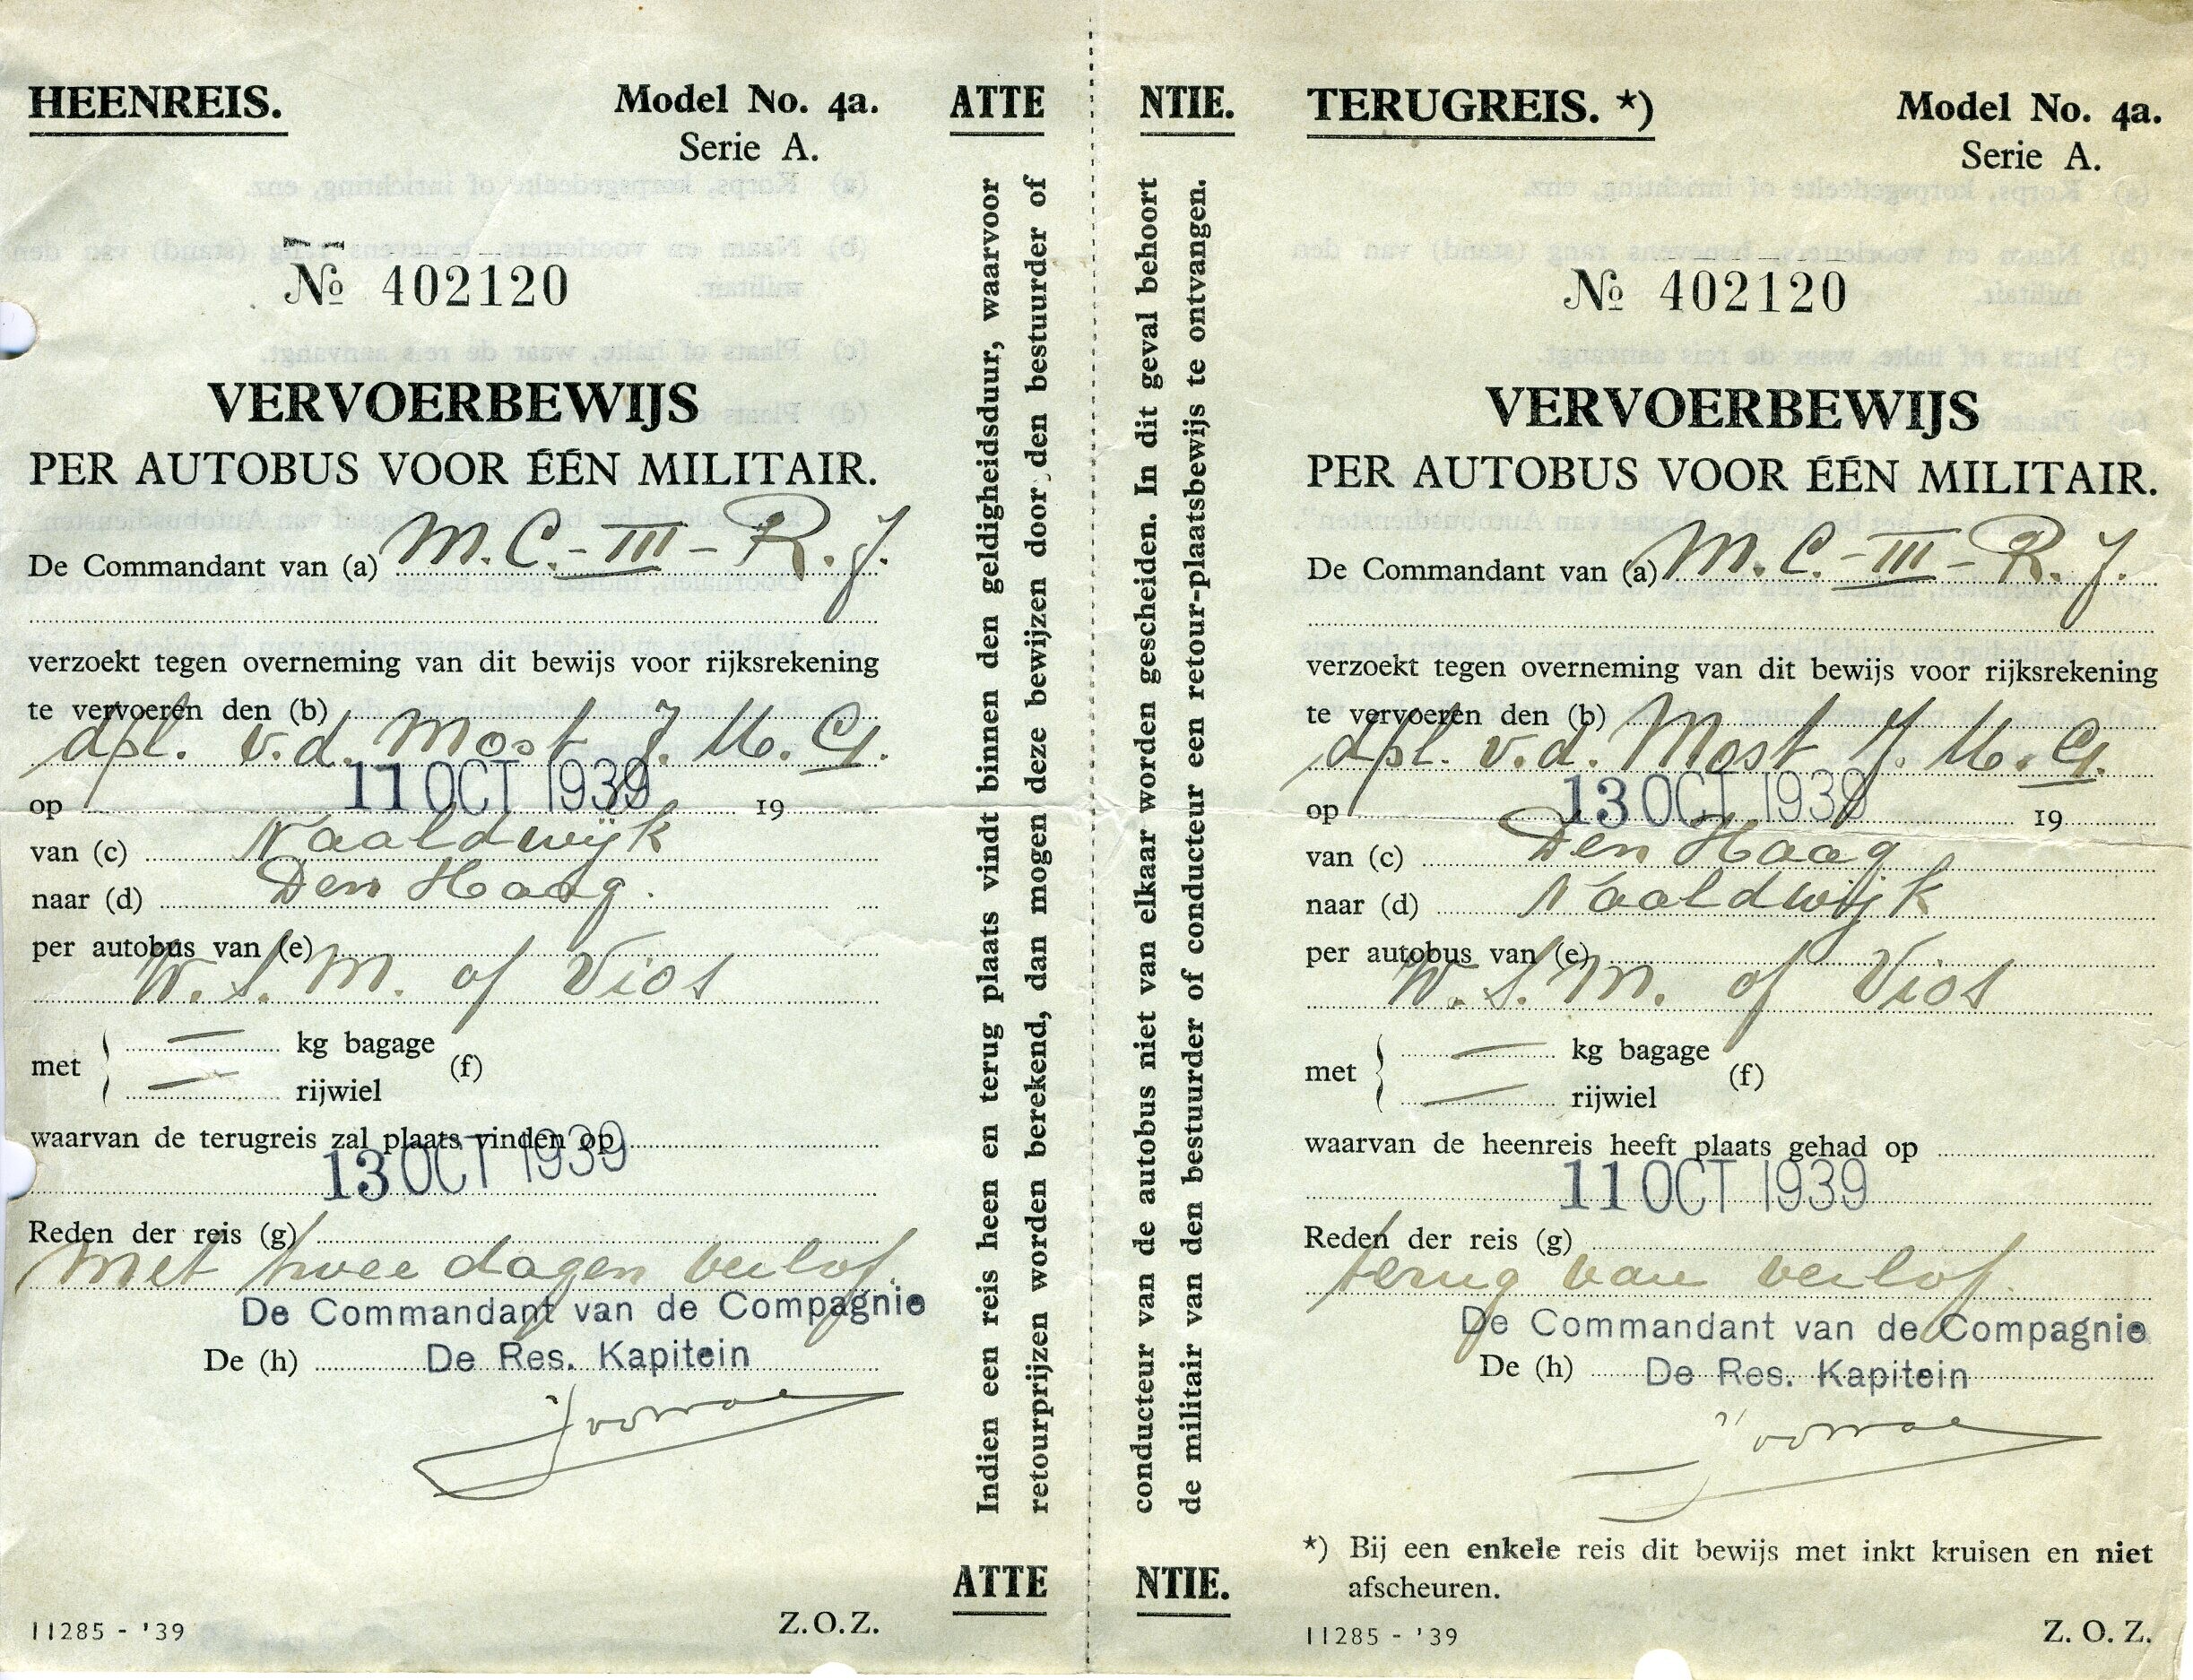 HEENREIS.
Model No. 4a.
Serie A.
№ 402120
VERVOERBEWIJS
PER AUTOBUS VOOR ÉÉN MILITAIR.
De Commandant van (a) M.C.-III-R.J.
verzoekt tegen overneming van dit bewijs voor rijksrekening
te vervoeren den (b)
dpl. v.d. Most J. M. G.
op 11 OCT 1939 19
van (c) Naaldwijk
naar (d) Den Haag.
per autobus van (e)
W.S.M. of Vios
met — kg bagage (f)
— rijwiel
waarvan de terugreis zal plaats vinden op
13 OCT 1939
Reden der reis (g)
Met twee dagen verlof.
De Commandant van de Compagnie
De (h) De Res. Kapitein
11285 - '39
Z.O.Z.
ATTE NTIE.
Indien een reis heen en terug plaats vindt binnen den geldigheidsduur, waarvoor
retourprijzen worden berekend, dan mogen deze bewijzen door den bestuurder of
conducteur van de autobus niet van elkaar worden gescheiden. In dit geval behoort
de militair van den bestuurder of conducteur een retour-plaatsbewijs te ontvangen.
ATTE NTIE.
TERUGREIS. *)
Model No. 4a.
Serie A.
№ 402120
VERVOERBEWIJS
PER AUTOBUS VOOR ÉÉN MILITAIR.
De Commandant van (a) M.C.-III-R.J.
verzoekt tegen overneming van dit bewijs voor rijksrekening
te vervoeren den (b)
dpl. v.d. Most J. M. G.
op 13 OCT 1939 19
van (c) Den Haag
naar (d) Naaldwijk
per autobus van (e)
W.S.M. of Vios
met — kg bagage (f)
— rijwiel
waarvan de heenreis heeft plaats gehad op
11 OCT 1939
Reden der reis (g)
terug van verlof
De Commandant van de Compagnie
De (h) De Res. Kapitein
*) Bij een enkele reis dit bewijs met inkt kruisen en niet
afscheuren.
11285 - '39
Z. O. Z.